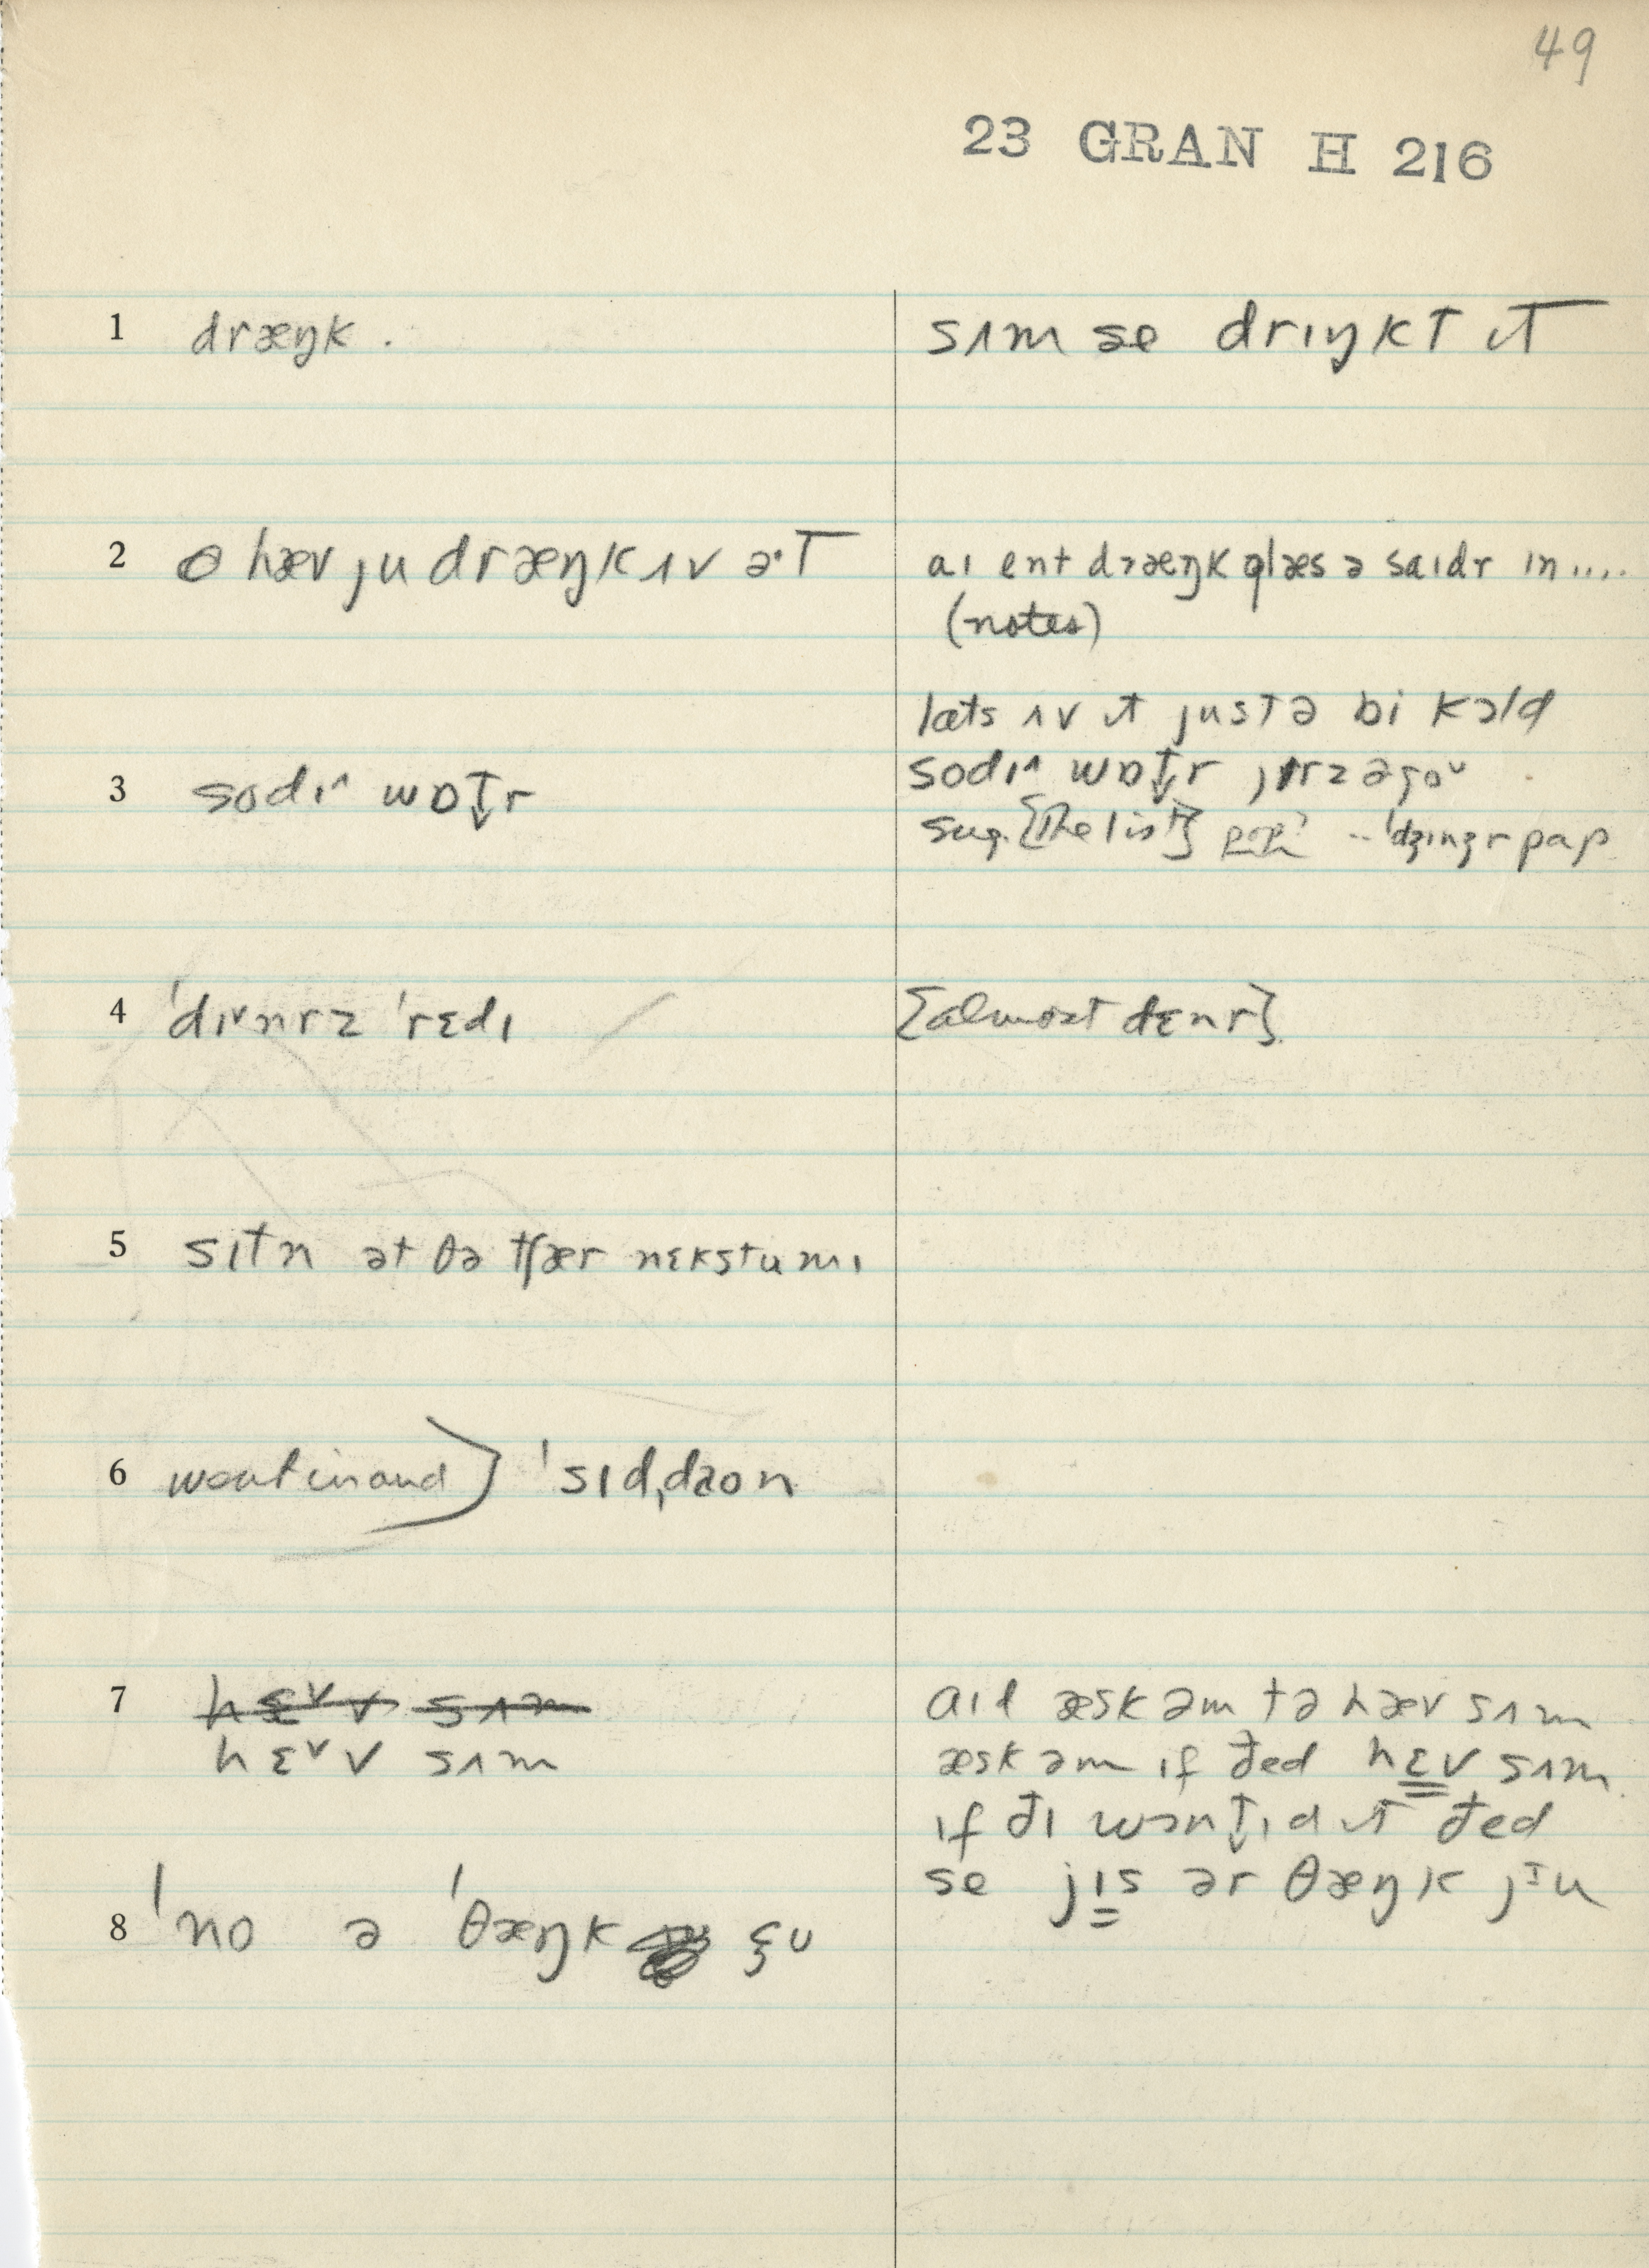 49
23 GRAN H 216
1 dræŋk .
sʌm se drɪŋkt ɪt
2 hæv ju dræŋk ʌv ə·t
aɪ ent dræŋk glæs ə saɪdr ɪn ....
(notes)
læts ʌv ɪt justə bi kɔld
3 sodɪ^ wɒt̬r
sodɪ^ wɒt̬r jɪrz əgo
sug. {The list} pop? -- 'dʒɪnʒr pap
4 'dɪᵛnrz 'rɛdɪ
{almost dɛnr}
5 sɪtn ət ðə tʃær nɛkstu mɪ
6 went in and) 'sɪd,daon
7 hɛᵛv sʌm
hɛᵛv sʌm
aɪl æsk əm tə hæv sʌm
æsk əm ɪf ðed hɛv sʌm
ɪf ðɪ wɔnt̬ɪd ɪt ðed
se jɪs ər θæŋk jᶦu
8 'no ə 'θæŋk çu